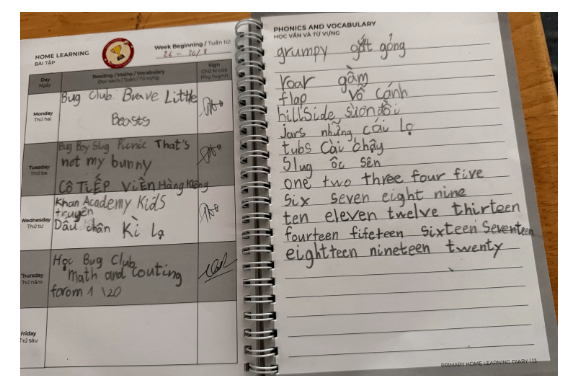 HOME LEARNING
BÀI TẬP
Week Beginning / Tuần từ:
26 - 20/8
Day
Ngày
Reading / Maths / Vocabulary
Sign
Monday
Thứ hai
Bug Club Brave Little
Beasts
Tuesday
Thứ ba
Bug Boy Slug Picnic That's
not my bunny
CÔ TIẾP VIÊN Hàng Không
Wednesday
Thứ tư
Khan Academy Kids
truyện
Dấu chân Kì lạ
Thursday
Thứ năm
Học Bug Club
math and couting
forom 1 \20
Friday
Thứ sáu
PHONICS AND VOCABULARY
HỌC VẦN VÀ TỪ VỰNG
grumpy gắt gỏng
roar gầm
flap vỗ cánh
hillside sườn đồi
jars những cái lọ
tubs Cái chậy
Slug ốc sên
one two three four five
six seven eight nine
ten eleven twelve thirteen
fourteen fifeteen sixteen Seventeen
eightteen nineteen twenty
PRIMARY HOME LEARNING DIARY